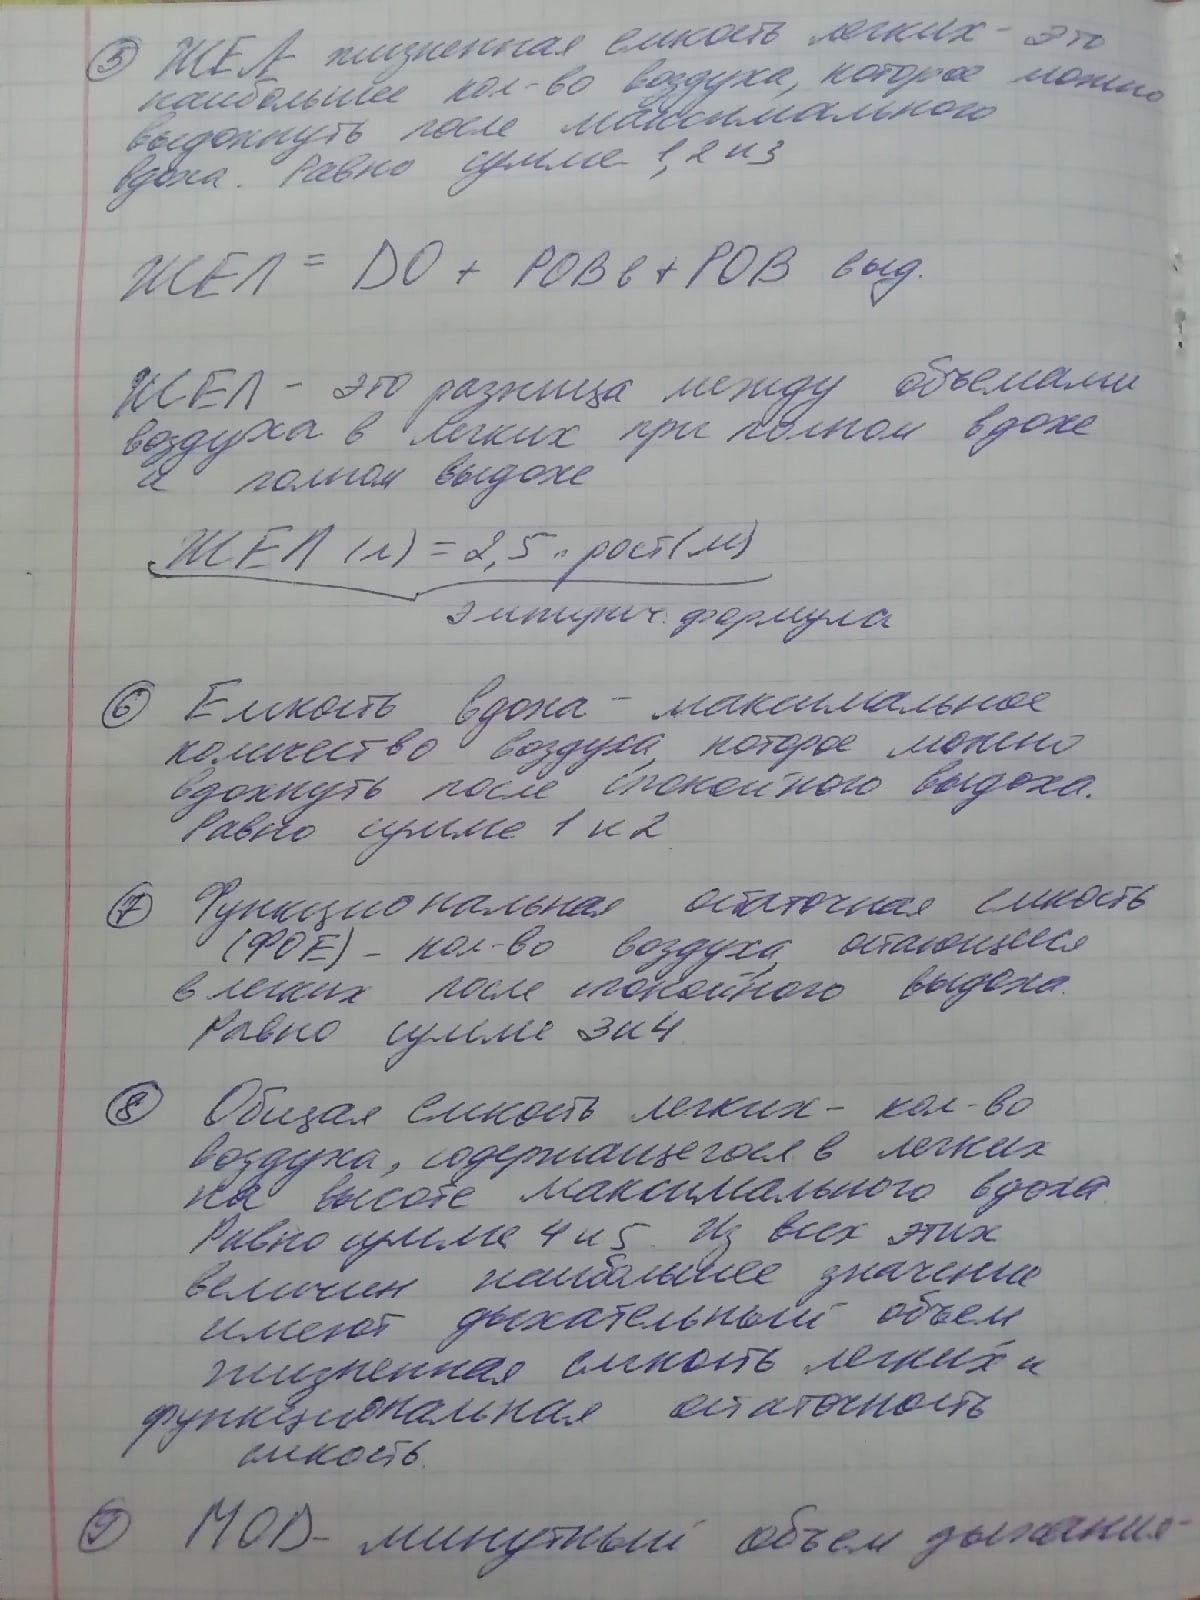 5 ЖЕЛ жизненная емкость легких - это
наибольшее кол-во воздуха, которое можно
выдохнуть после максимального
вдоха. Равно сумме 1, 2 и 3
ЖЕЛ = DO + РОВв + РОВ выд.
ЖЕЛ - это разница между объемами
воздуха в легких при полном вдохе
и полном выдохе
ЖЕЛ (л) = 2,5 · рост (м)
эмпирич. формула
6 Емкость вдоха - максимальное
количество воздуха, которое можно
вдохнуть после спокойного выдоха.
Равно сумме 1 и 2
7 Функциональная остаточная емкость
(ФОЕ) - кол-во воздуха, остающееся
в легких после спокойного выдоха.
Равно сумме 3 и 4
8 Общая емкость легких - кол-во
воздуха, содержащегося в легких
на высоте максимального вдоха.
Равно сумме 4 и 5. Из всех этих
величин наибольшее значение
имеют дыхательный объем
жизненная емкость легких и
функциональная остаточность
емкость.
9 МОД - минутный объем дыхания -